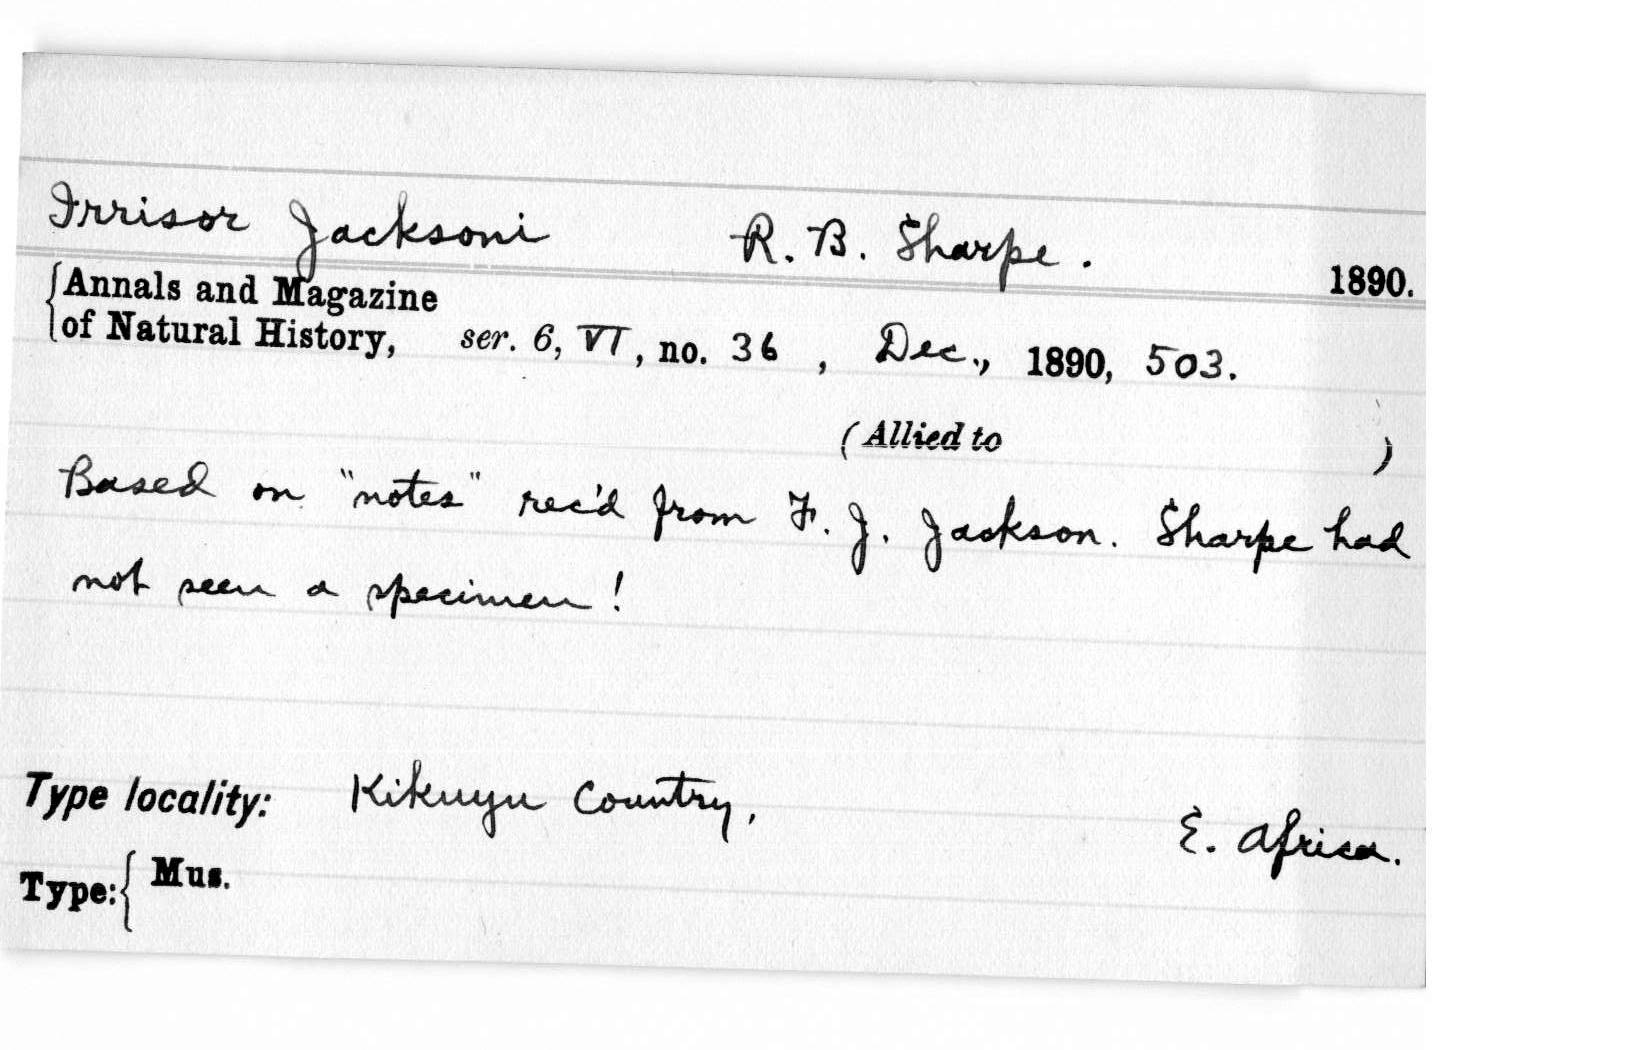 Irrisor Jacksoni R. B. Sharpe. 1890.
Annals and Magazine
of Natural History, ser. 6, VI, no. 36, Dec., 1890, 503.
(Allied to )
Based on "notes" rec'd from F. J. Jackson. Sharpe had
not seen a specimen!
Type locality: Kikuyu Country, E. Africa.
Type: Mus.